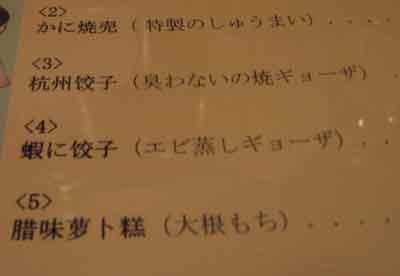 <2>
かに焼売（特製のしゅうまい）....
<3>
杭州饺子（臭わないの焼ギョーザ）.
<4>
蝦に饺子（エビ蒸しギョーザ）..
<5>
腊味萝卜糕（大根もち）....